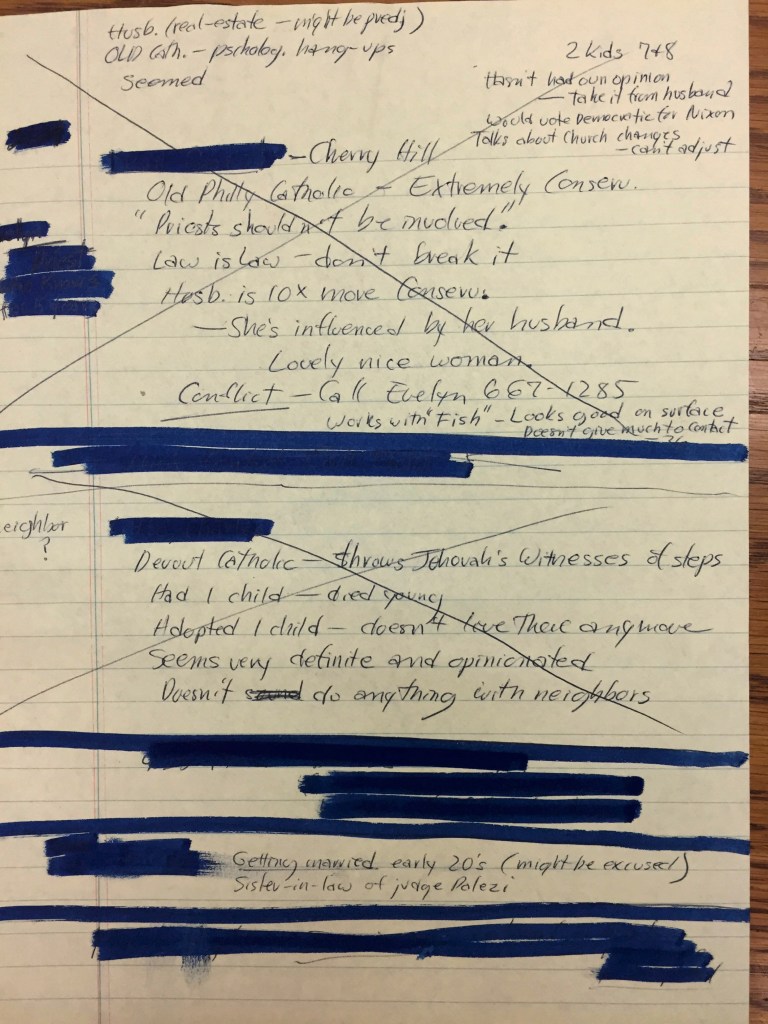 Husb. (real-estate - might be predj)
OLD Cath. - pscholog. hang-ups
Seemed
2 Kids 7+8
Hasn't had own opinion
- Take it from husband
Would vote Democratic for Nixon
Talks about Church changes
- can't adjust
- Cherry Hill
Old Philly Catholic - Extremely Conserv.
"Priests shouldn't be involved."
Law is law - don't break it
Husb. is 10x more Conserv.
- She's influenced by her husband.
Lovely nice woman.
Conflict - Call Evelyn 667-1285
Works with "Fish" - Looks good on surface
Doesn't give much to contact
eighbor
?
Devout Catholic - throws Jehovah's Witnesses of steps
Had 1 child - died young
Adopted 1 child - doesn't live there anymore
Seems very definite and opinionated
Doesn't do anything with neighbors
Getting married. early 20's (might be excused)
Sister-in-law of judge Palezi